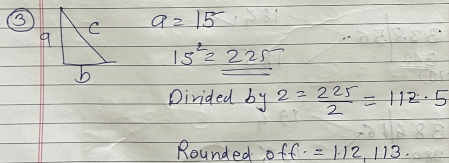 ③ a c b
a = 15
15² = 225
Divided by 2 = 225/2 = 112.5
Rounded off. = 112, 113.